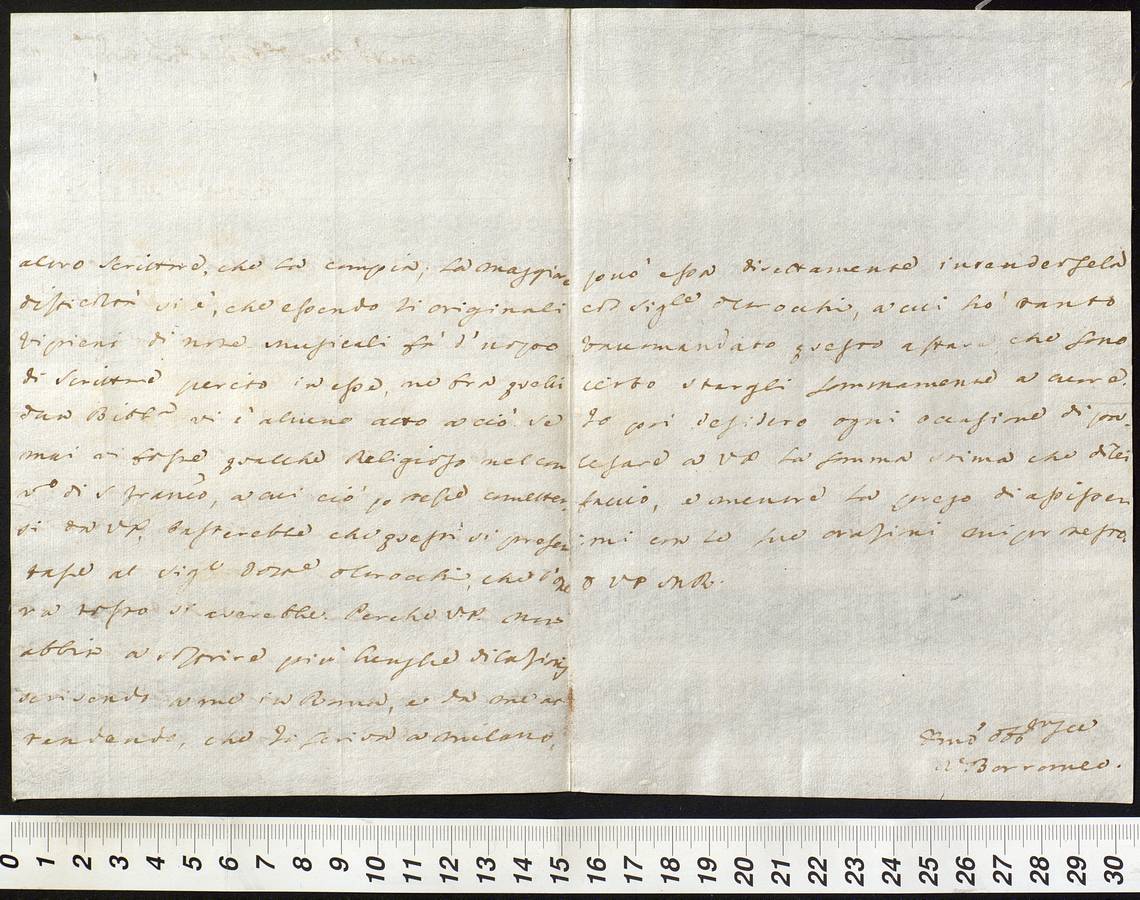 altro scrittore, che la compia; la maggior
difficoltà si è, che essendo li originali
ripieni di note musicali fà d'uopo
di scrittore perito in esse, ne fra quelli
della Bibl.a vi è alcuno atto a ciò. Se
mai vi fosse qualche Religioso nel con
v.o di S. Franc.o, a cui ciò potesse cometter-
si da V.P. basterebbe che questi si presen
tasse al Sig.r Dott.e Oltrocchi, che l'ope
ra tosto si averebbe. Perche V.P. non
abbia a soffrire più lunghe dilazioni
scrivendo a me in Roma, e da me at
tendendo, che io scriva a Milano,
può essa direttamente intendersela
col Sig.re Oltrocchi, a cui hò tanto
raccomandato questo affare, che sono
certo stargli sommamente a cuore.
Io poi desidero ogni occasione di pa-
lesare a V.P. la somma stima che di lei
faccio, e mentre la prego di assister
mi con le sue orazioni mi protesto
D V.P. M.R.
V. Borromeo.